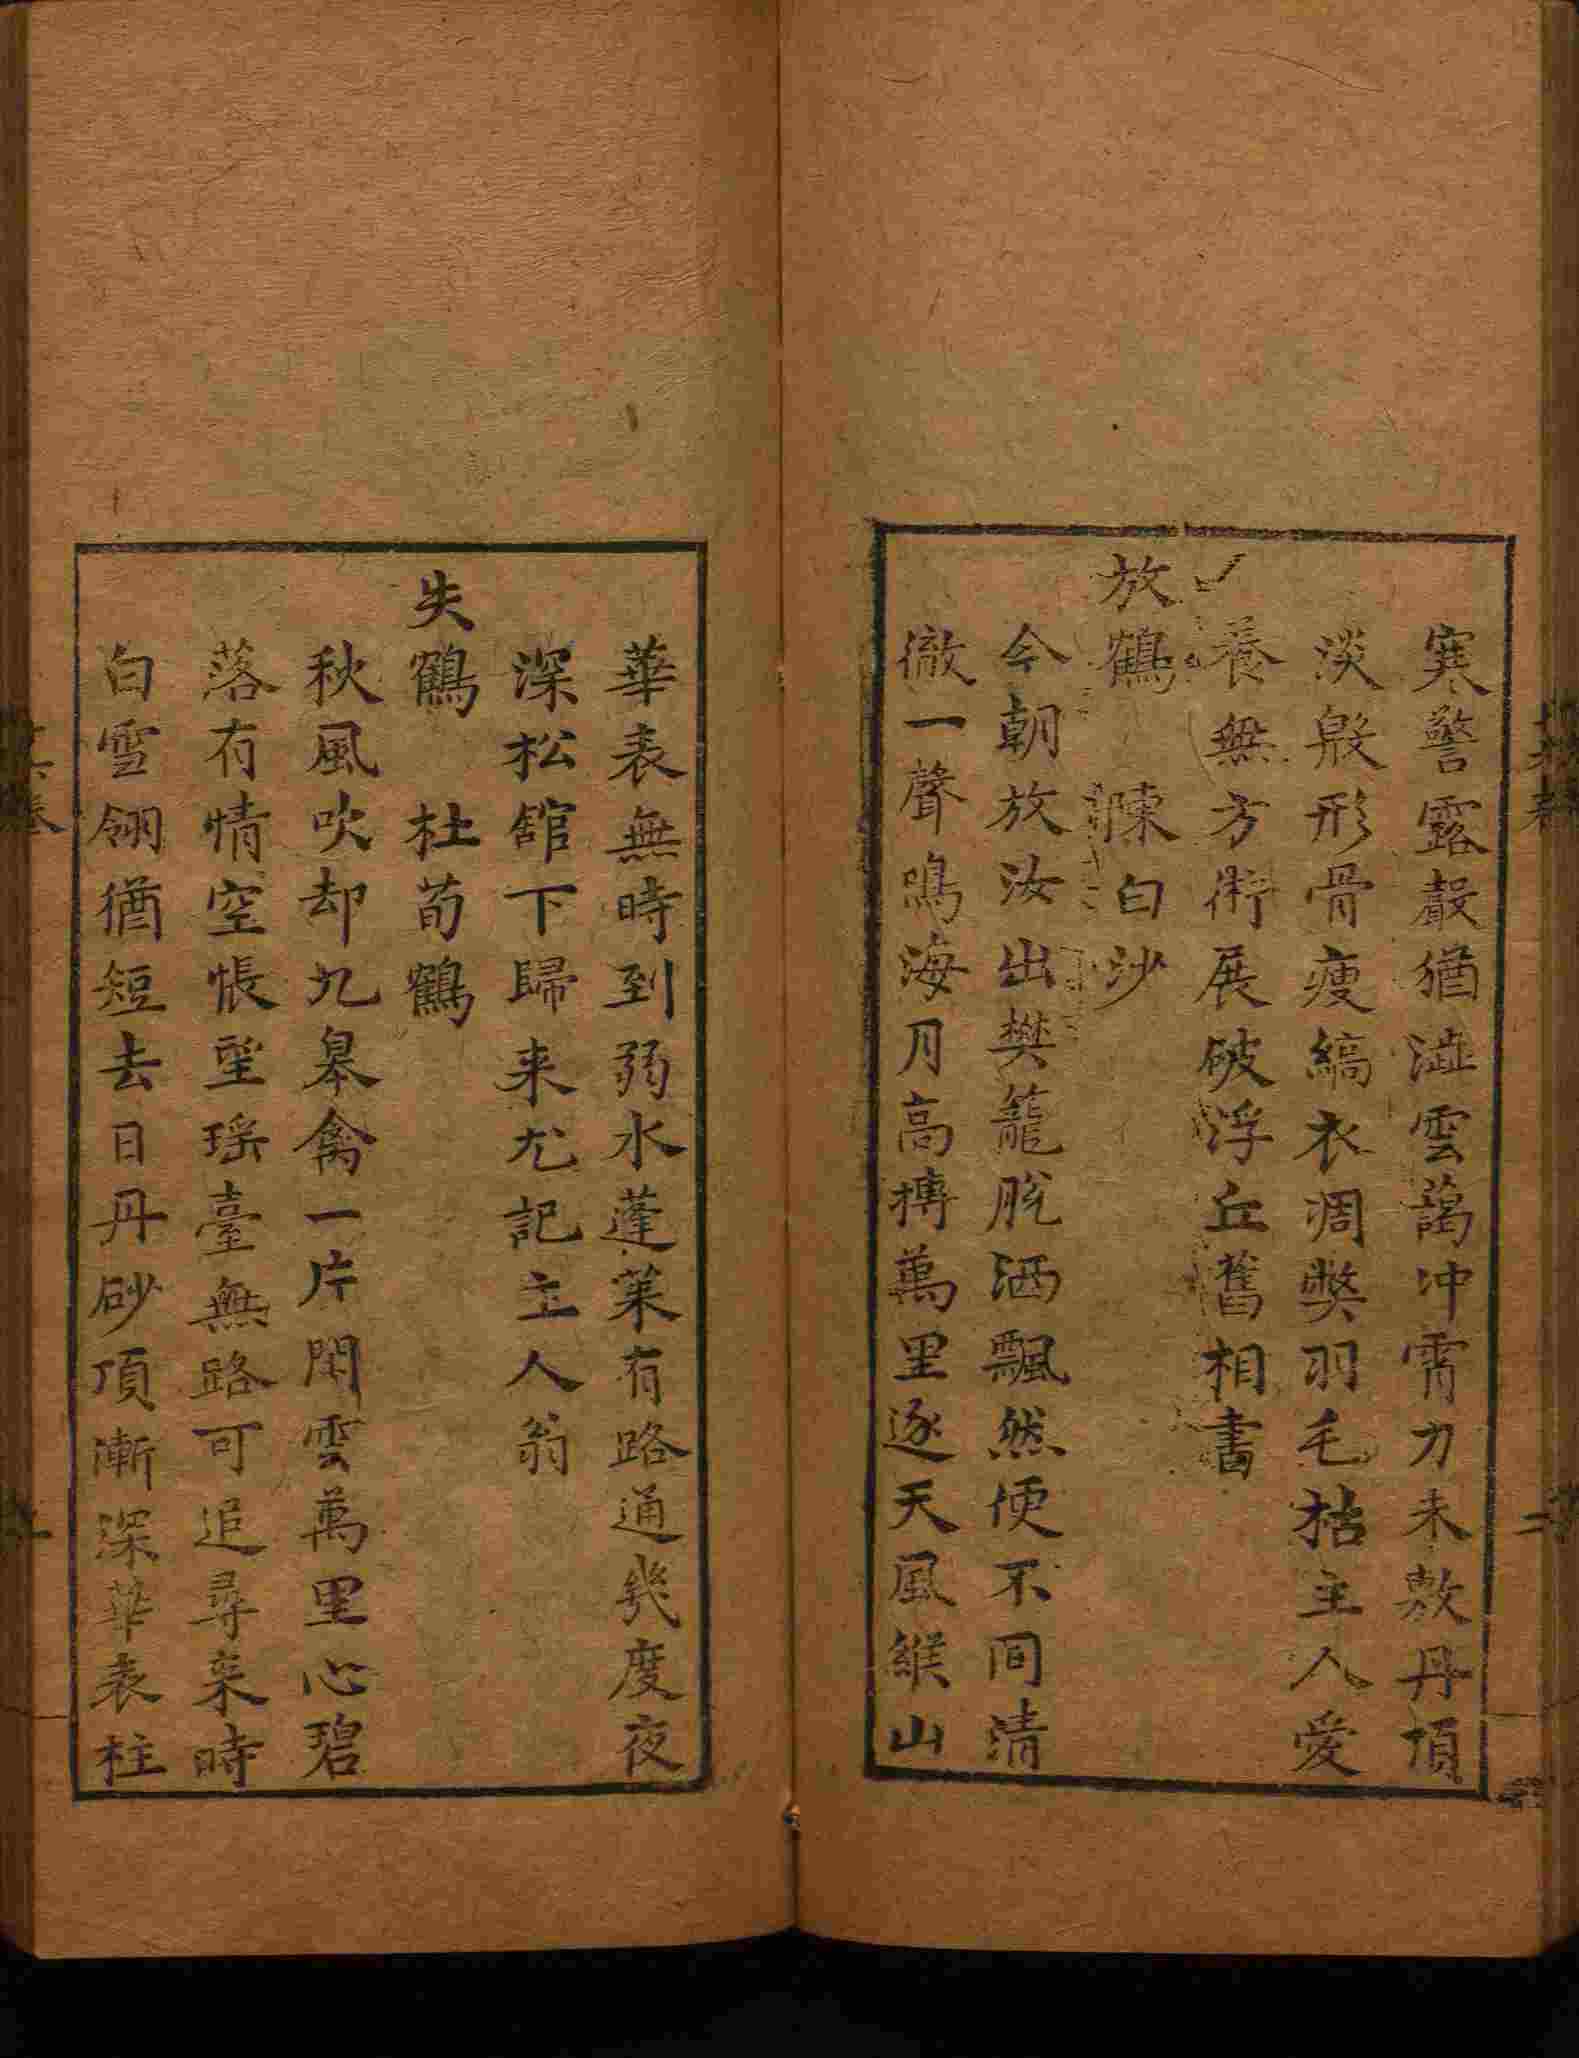 寒警露聲猶澁雲藹冲霄力未敷丹頂
淡殷形骨瘦縞衣凋獘羽毛枯主人愛
養無方術展破浮丘舊相書
放鶴　陳白沙
今朝放汝出樊籠脫洒飄然便不同清
徹一聲鳴海月高摶萬里逐天風緱山
華表無時到弱水蓬萊有路通幾度夜
深松舘下歸来尤記主人翁
失鶴　杜荀鶴
秋風吹却九皋禽一片閑雲萬里心碧
落有情空悵望瑶臺無路可追尋来時
白雪翎猶短去日丹砂頂漸深華表柱